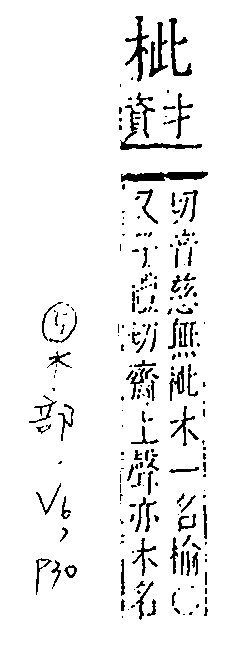 㭰
才資
切音慈無㭰木一名榆○
又子禮切齎上聲亦木名
木部.V6,
P30